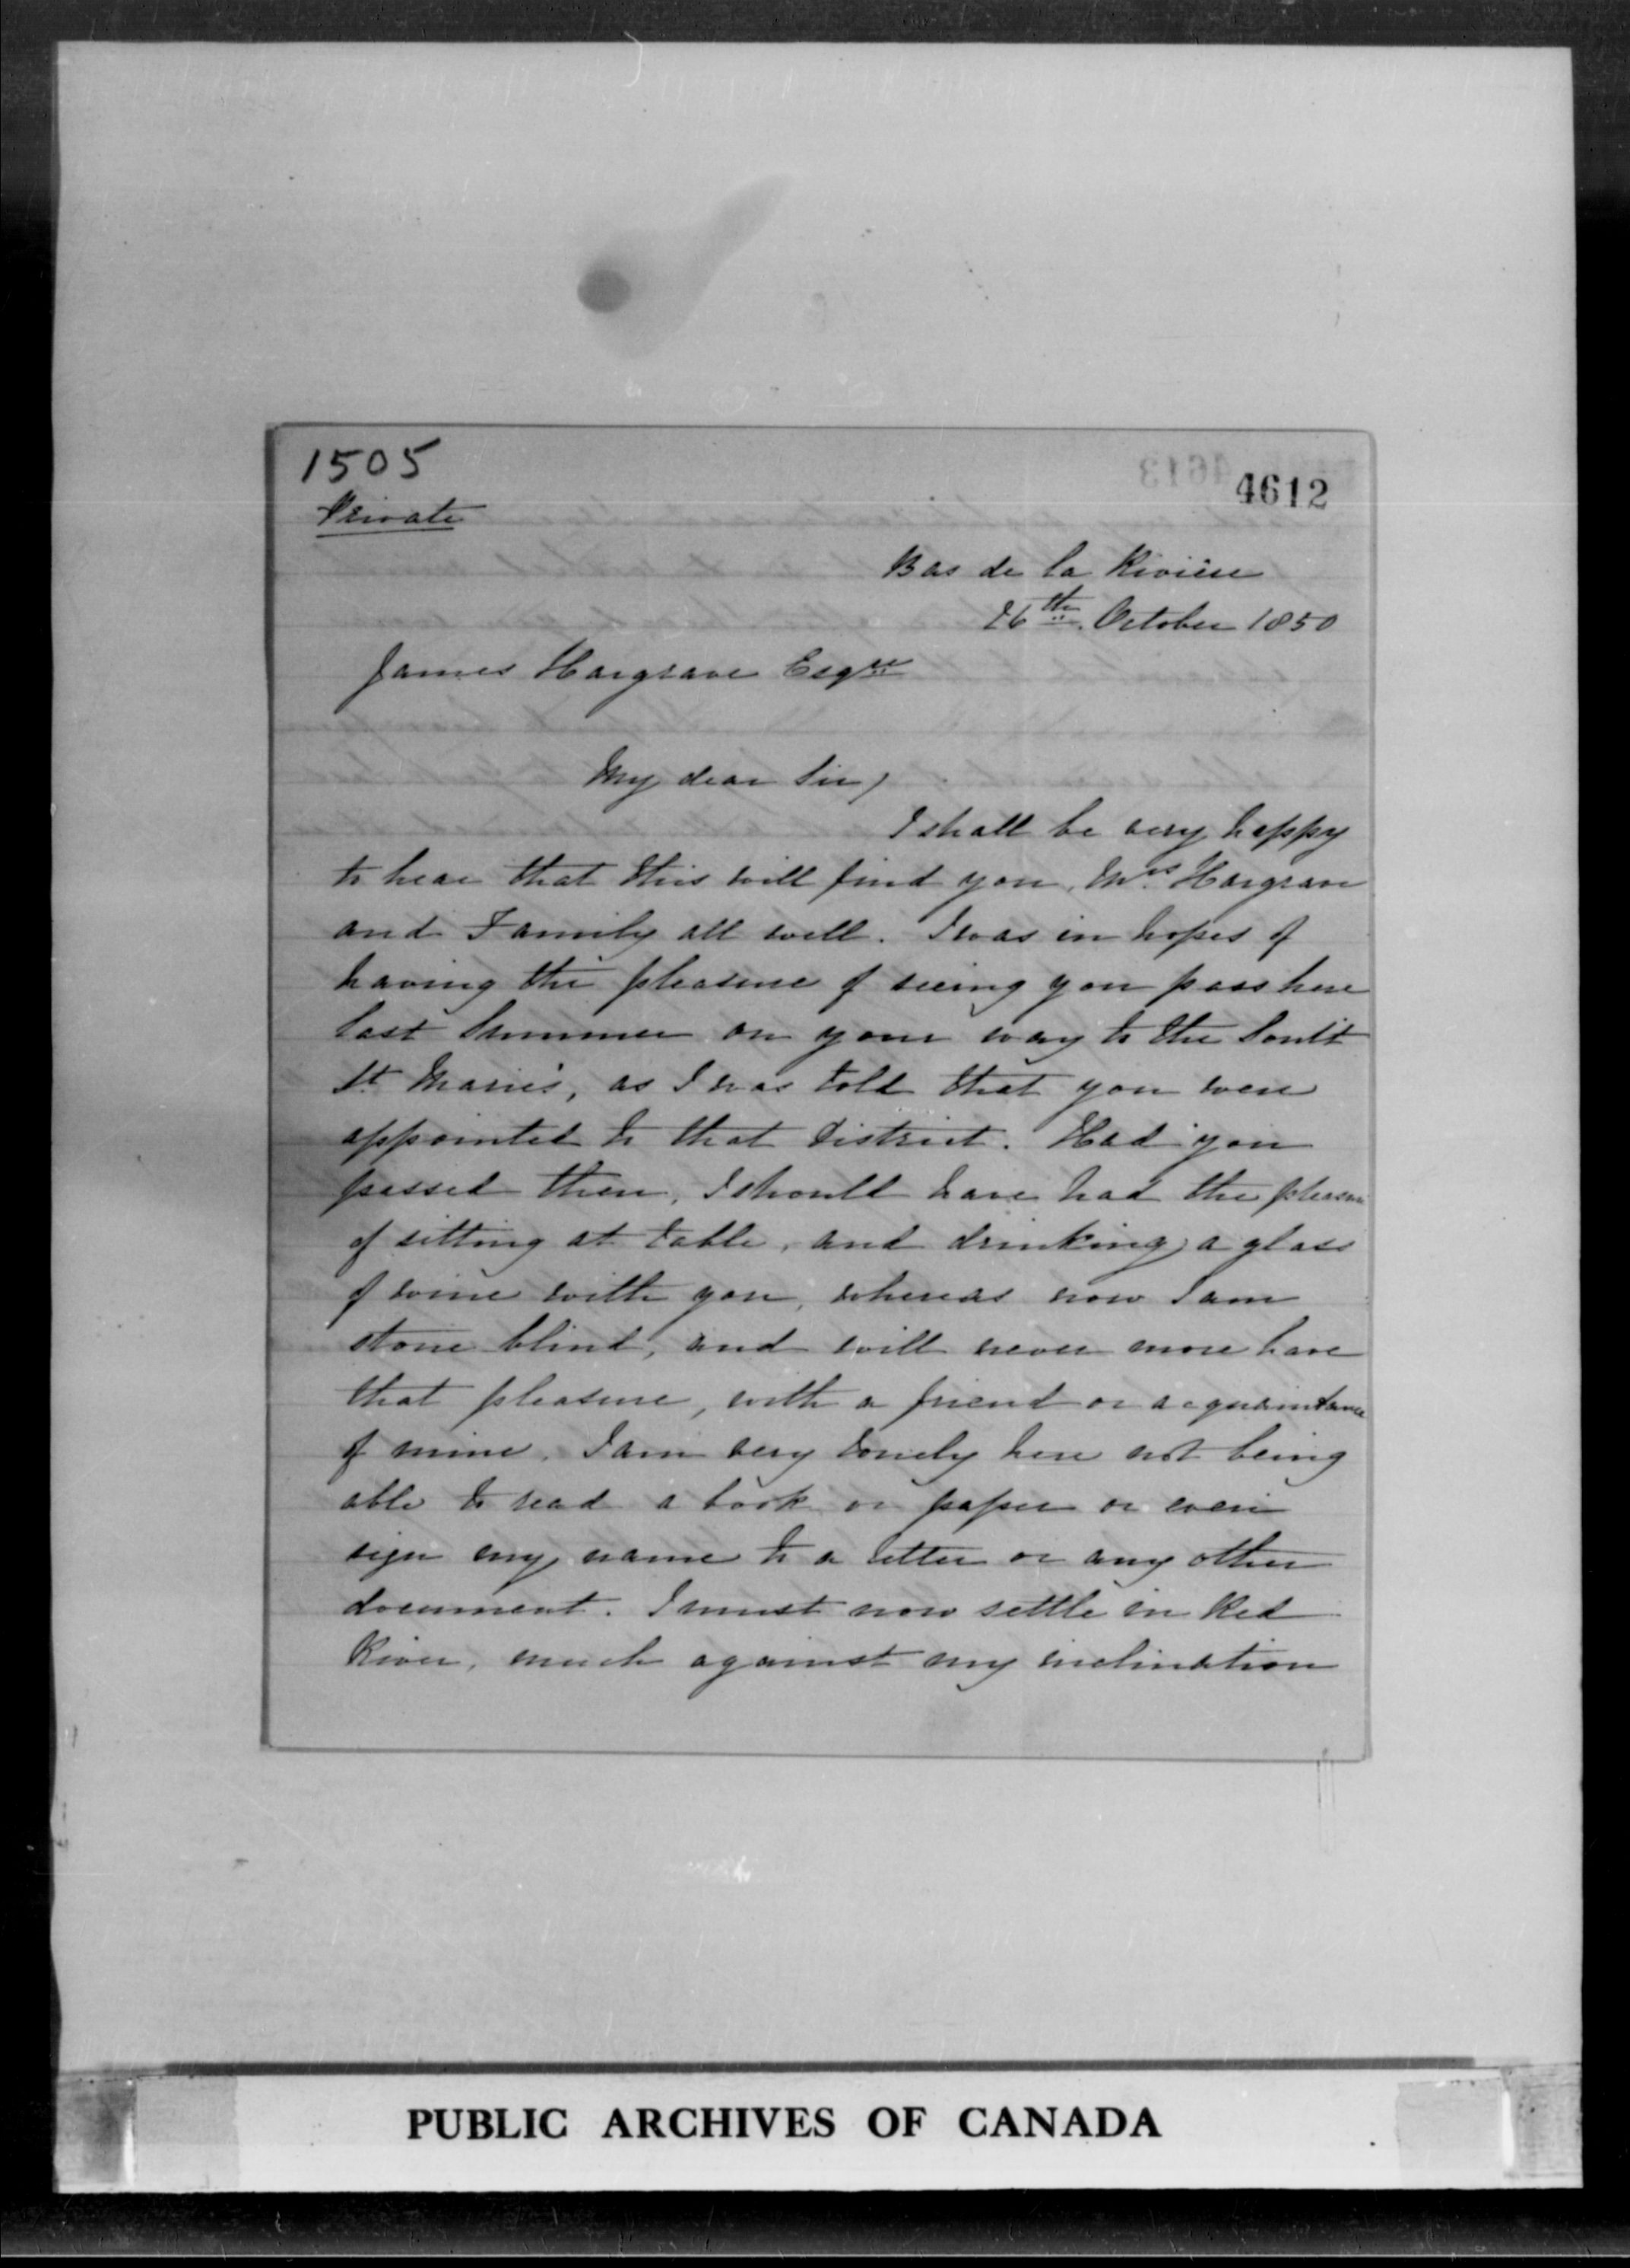 1505
4612
Private
Bas de la Rivière
26th October 1850
James Hargrave Esqre
My dear Sir,
I shall be very happy
to hear that this will find you, Mrs Hargrave
and Family all well. I was in hopes of
having the pleasure of seeing you pass here
last Summer on your way to the Sault
St Marie's, as I was told that you were
appointed to that District. Had you
passed then, I should have had the pleasure
of sitting at table, and drinking a glass
of wine with you, whereas now I am
stone blind, and will never more have
that pleasure, with a friend or acquaintance
of mine. I am very lonely here not being
able to read a book or paper or even
sign my name to a letter or any other
document. I must now settle in Red
River, much against my inclination
PUBLIC ARCHIVES OF CANADA